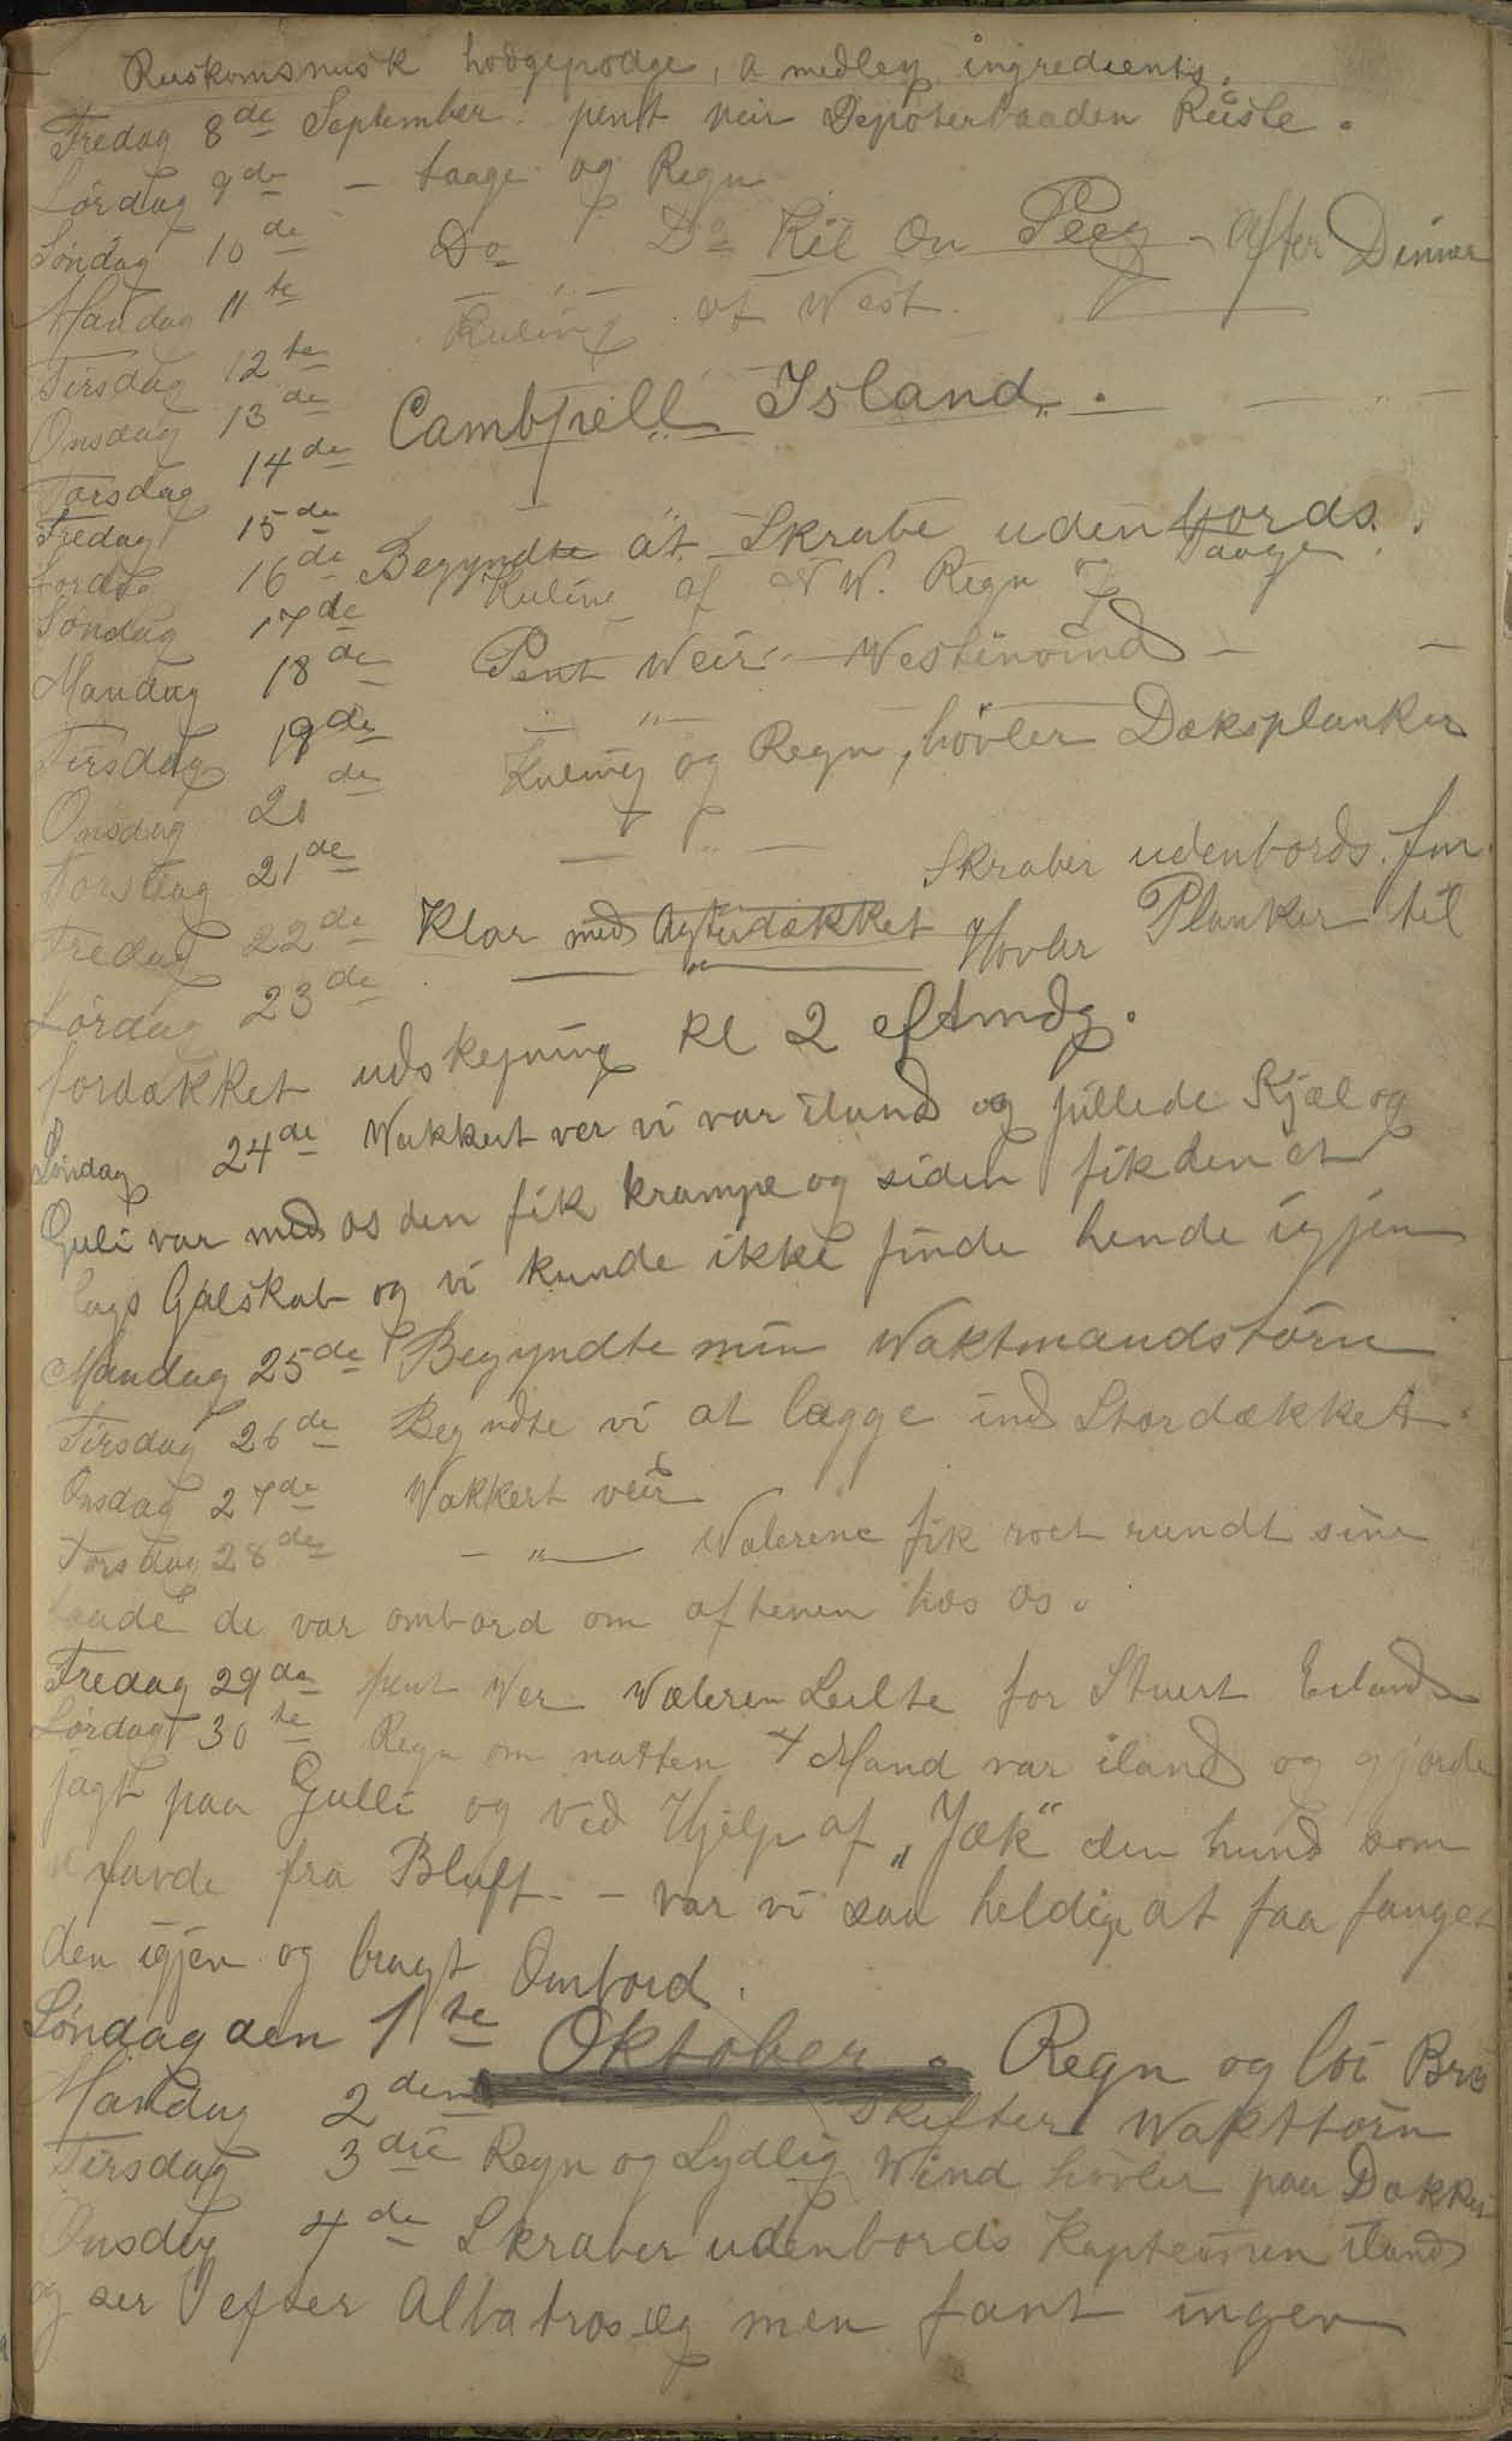 Ruskomsnusk hodgepodge, a medley ingredients.
Fredag 8de September. pent veir Depoterbaaden Reiste.
Lördag 9de — taage og Regn
Söndag 10de Do Do Kil On Peeg - After Dinner
Mandag 11te — " —
Tirsdag 12te Kuling af West.
Onsdag 13de
Torsdag 14de Cambpell Island. — " —
Fredag 15de
Lordag 16de Begyndte at Skrabe udenbords.
Söndag 17de Kuling af NW. Regn og Taage
Mandag 18de Pent Weir - Westinvind — —
Tirsdag 19de — " —
Onsdag 20de Kuling og Regn, hövler Dæksplanker
Torsdag 21de — " —
Fredag 22de Klar med Agterdækket Skraber udenbords. fm.
Lördag 23de — " — Hövler Planker til
fordækket udskejning kl 2 eftmdg.
Söndag 24de Wakkert ver vi var iland og pillede Skjæl og
Guli var med os den fik krampe og siden fik den et
lags Galskab og vi kunde ikke finde hende igjen
Mandag 25de Begyndte min Waktmandstörn
Tirsdag 26de Begndte vi at lægge ind Stordækket.
Onsdag 27de Wakkert veir
Torsdag 28de — " — Walerene fik roet rundt sine
baade de var ombord om aftenen hos os.
Fredag 29de pent Ver Waleren Seilte for Stuert Eiland
Lördag 30te Regn om natten 4 Mand var iland og gjorde
jagt paa Gulli og ved Hjelp af „Jæk“ den hund som
vi havde fra Bluff. - var vi saa heldige at faa fanget
den igjen og bragt Ombord.
Söndag den 1te Oktober. Regn og
Mandag 2den Skifter Wakttörn
Tirsdag 3die Regn og Sydlig Wind hövler paa Dækket
Onsdag 4de Skraber udenbords Kapteinen iland
og ser efter Albatros æg men fant ingen